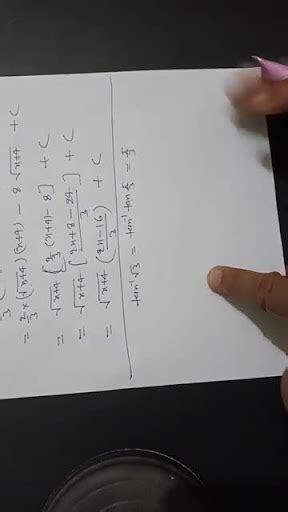 = 2/3 × (√x+4) (x+4) - 8 √x+4 + C
= √x+4 [2/3 (x+4) - 8] + C
= √x+4 [2x+8-24/3] + C
= √x+4 (2x-16/3) + C
tan⁻¹ √3 = tan⁻¹ tan π/3 = π/3